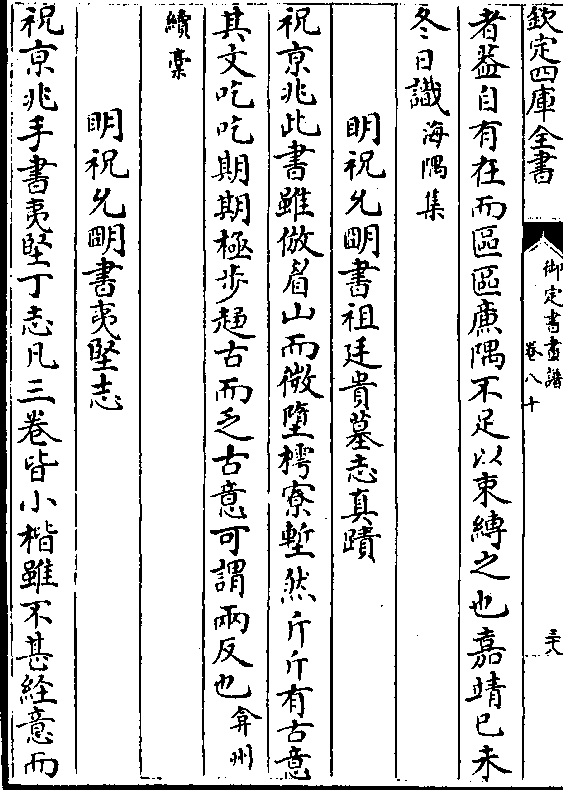 欽定四庫全書
御定書畫譜
卷八十
三十八
者葢自有在而區區廉隅不足以束縛之也嘉靖己未
冬日識海隅集
明祝允明書祖廷貴墓志真蹟
祝京兆此書雖倣眉山而微墮樗寮塹然斤斤有古意
其文吃吃期期極步趨古而乏古意可謂兩反也弇州
續稾
明祝允明書夷堅志
祝京兆手書夷堅丁志凡三卷皆小楷雖不甚經意而